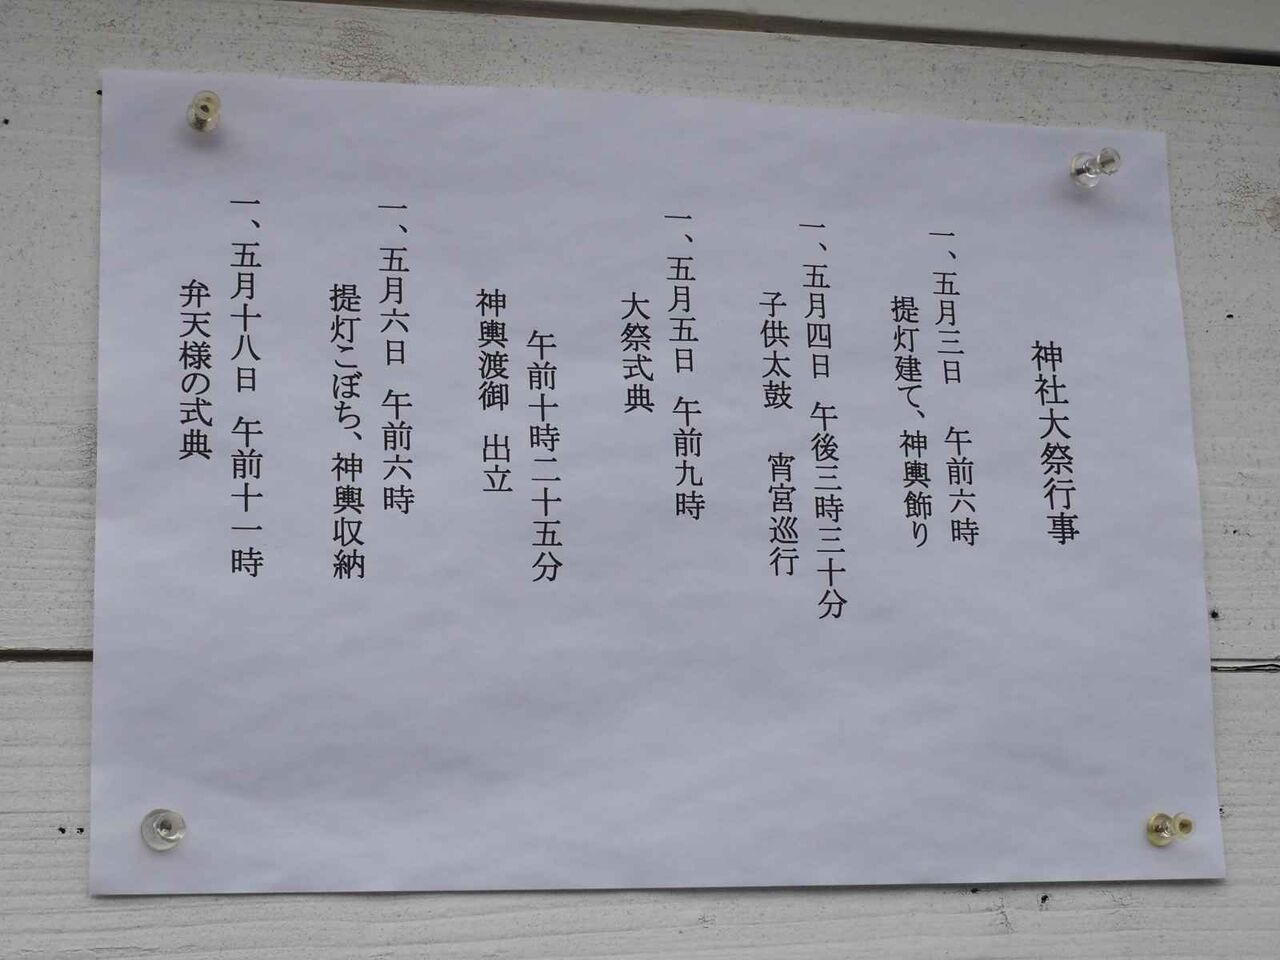 神社大祭行事
一、五月三日　午前六時
提灯建て、神輿飾り
一、五月四日　午後三時三十分
子供太鼓　宵宮巡行
一、五月五日　午前九時
大祭式典
午前十時二十五分
神輿渡御　出立
一、五月六日　午前六時
提灯こぼち、神輿収納
一、五月十八日　午前十一時
弁天様の式典